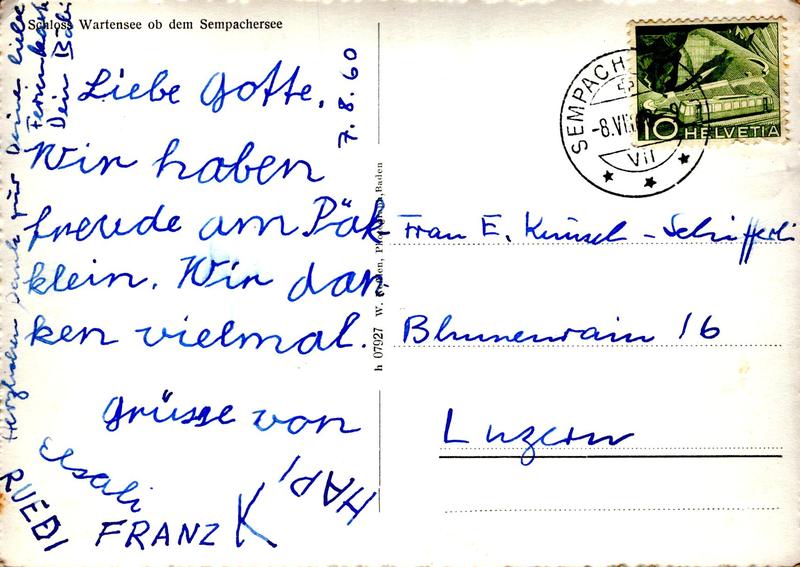 Schloss Wartensee ob dem Sempachersee
Liebe Gotte.
7.8.60
Wir haben
freude am Päk
klein. Wir dan
ken vielmal.
Grüsse von
Elsali
HAPI
RUEDI
FRANZ K
Herzlichen Dank für Deine liebe
Ferienkarte
Dein Bäbi
h 07927 W.
Baden
SEMPACH
-8.VI
VII
10 HELVETIA
Frau E. Künsch-Schifferli
Blumenrain 16
Luzern